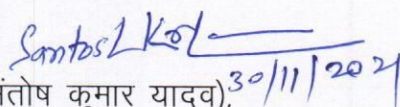 Santosh Kr
30/11/2021
ंतोष कुमार यादव)